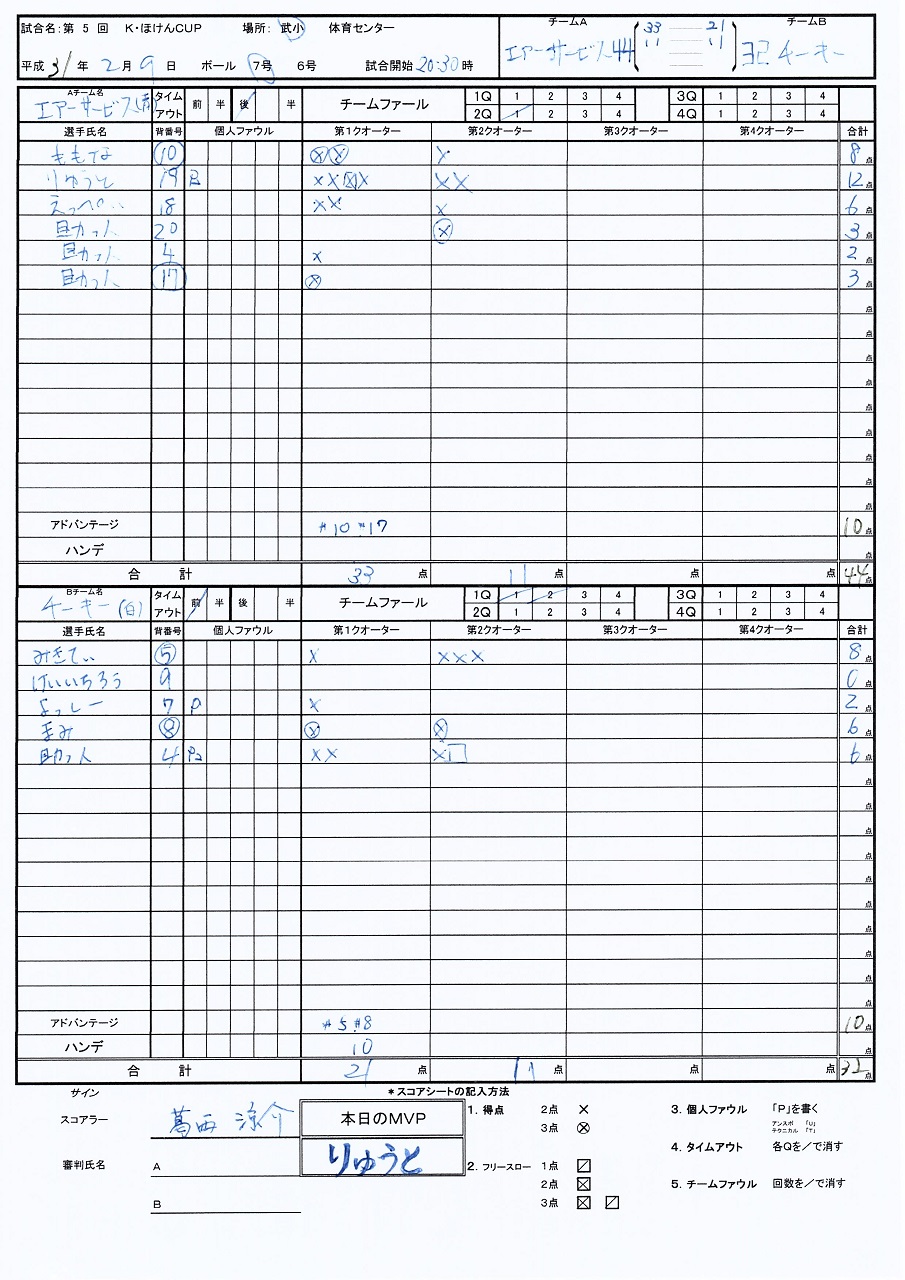 試合名:第 5 回 K・ほけんCUP 場所: 武小 体育センター
平成 31 年 2 月 9 日 ボール 7号 6号 試合開始 20:30 時
チームA チームB
エアーサービス 44 33 21 11 11 32 チーキー
Aチーム名 エアーサービス(青) タイムアウト 前 半 後 半 チームファール 1Q 1 2 3 4 3Q 1 2 3 4
2Q 1 2 3 4 4Q 1 2 3 4
選手氏名 背番号 個人ファウル 第1クオーター 第2クオーター 第3クオーター 第4クオーター 合計
ももな 10 ⊗⊗ × 8点
りゅうと 19 ×× ☒× ×× 12点
18 ×× × 6点
助っ人 20 ⊗ 3点
助っ人 4 × 2点
助っ人 17 ⊗ 3点
点
点
点
点
点
点
点
点
点
アドバンテージ #10 #17 10点
ハンデ 点
合 計 33 点 11 点 点 点 44点
Bチーム名 チーキー (白) タイムアウト 前 半 後 半 チームファール 1Q 1 2 3 4 3Q 1 2 3 4
2Q 1 2 3 4 4Q 1 2 3 4
選手氏名 背番号 個人ファウル 第1クオーター 第2クオーター 第3クオーター 第4クオーター 合計
みきてぃ 5 × ××× 8点
けいいちろう 9 0点
よっしー 7 P × 2点
まみ 8 ⊗ ⊗ 6点
助っ人 4 P2 ×× ×□ 6点
点
点
点
点
点
点
点
点
点
点
アドバンテージ #5 #8 10点
ハンデ 10 点
合 計 21 点 11 点 点 点 32点
サイン
スコアラー 葛西 涼介
審判氏名 A
B
本日のMVP
りゅうと
*スコアシートの記入方法
1. 得点 2点 ×
3点 ⊗
2. フリースロー 1点 ⧄
2点 ☒
3点 ☒ ⧄
3. 個人ファウル 「P」を書く
アンスポ 「U」
テクニカル 「T」
4. タイムアウト 各Qを/で消す
5. チームファウル 回数を/で消す